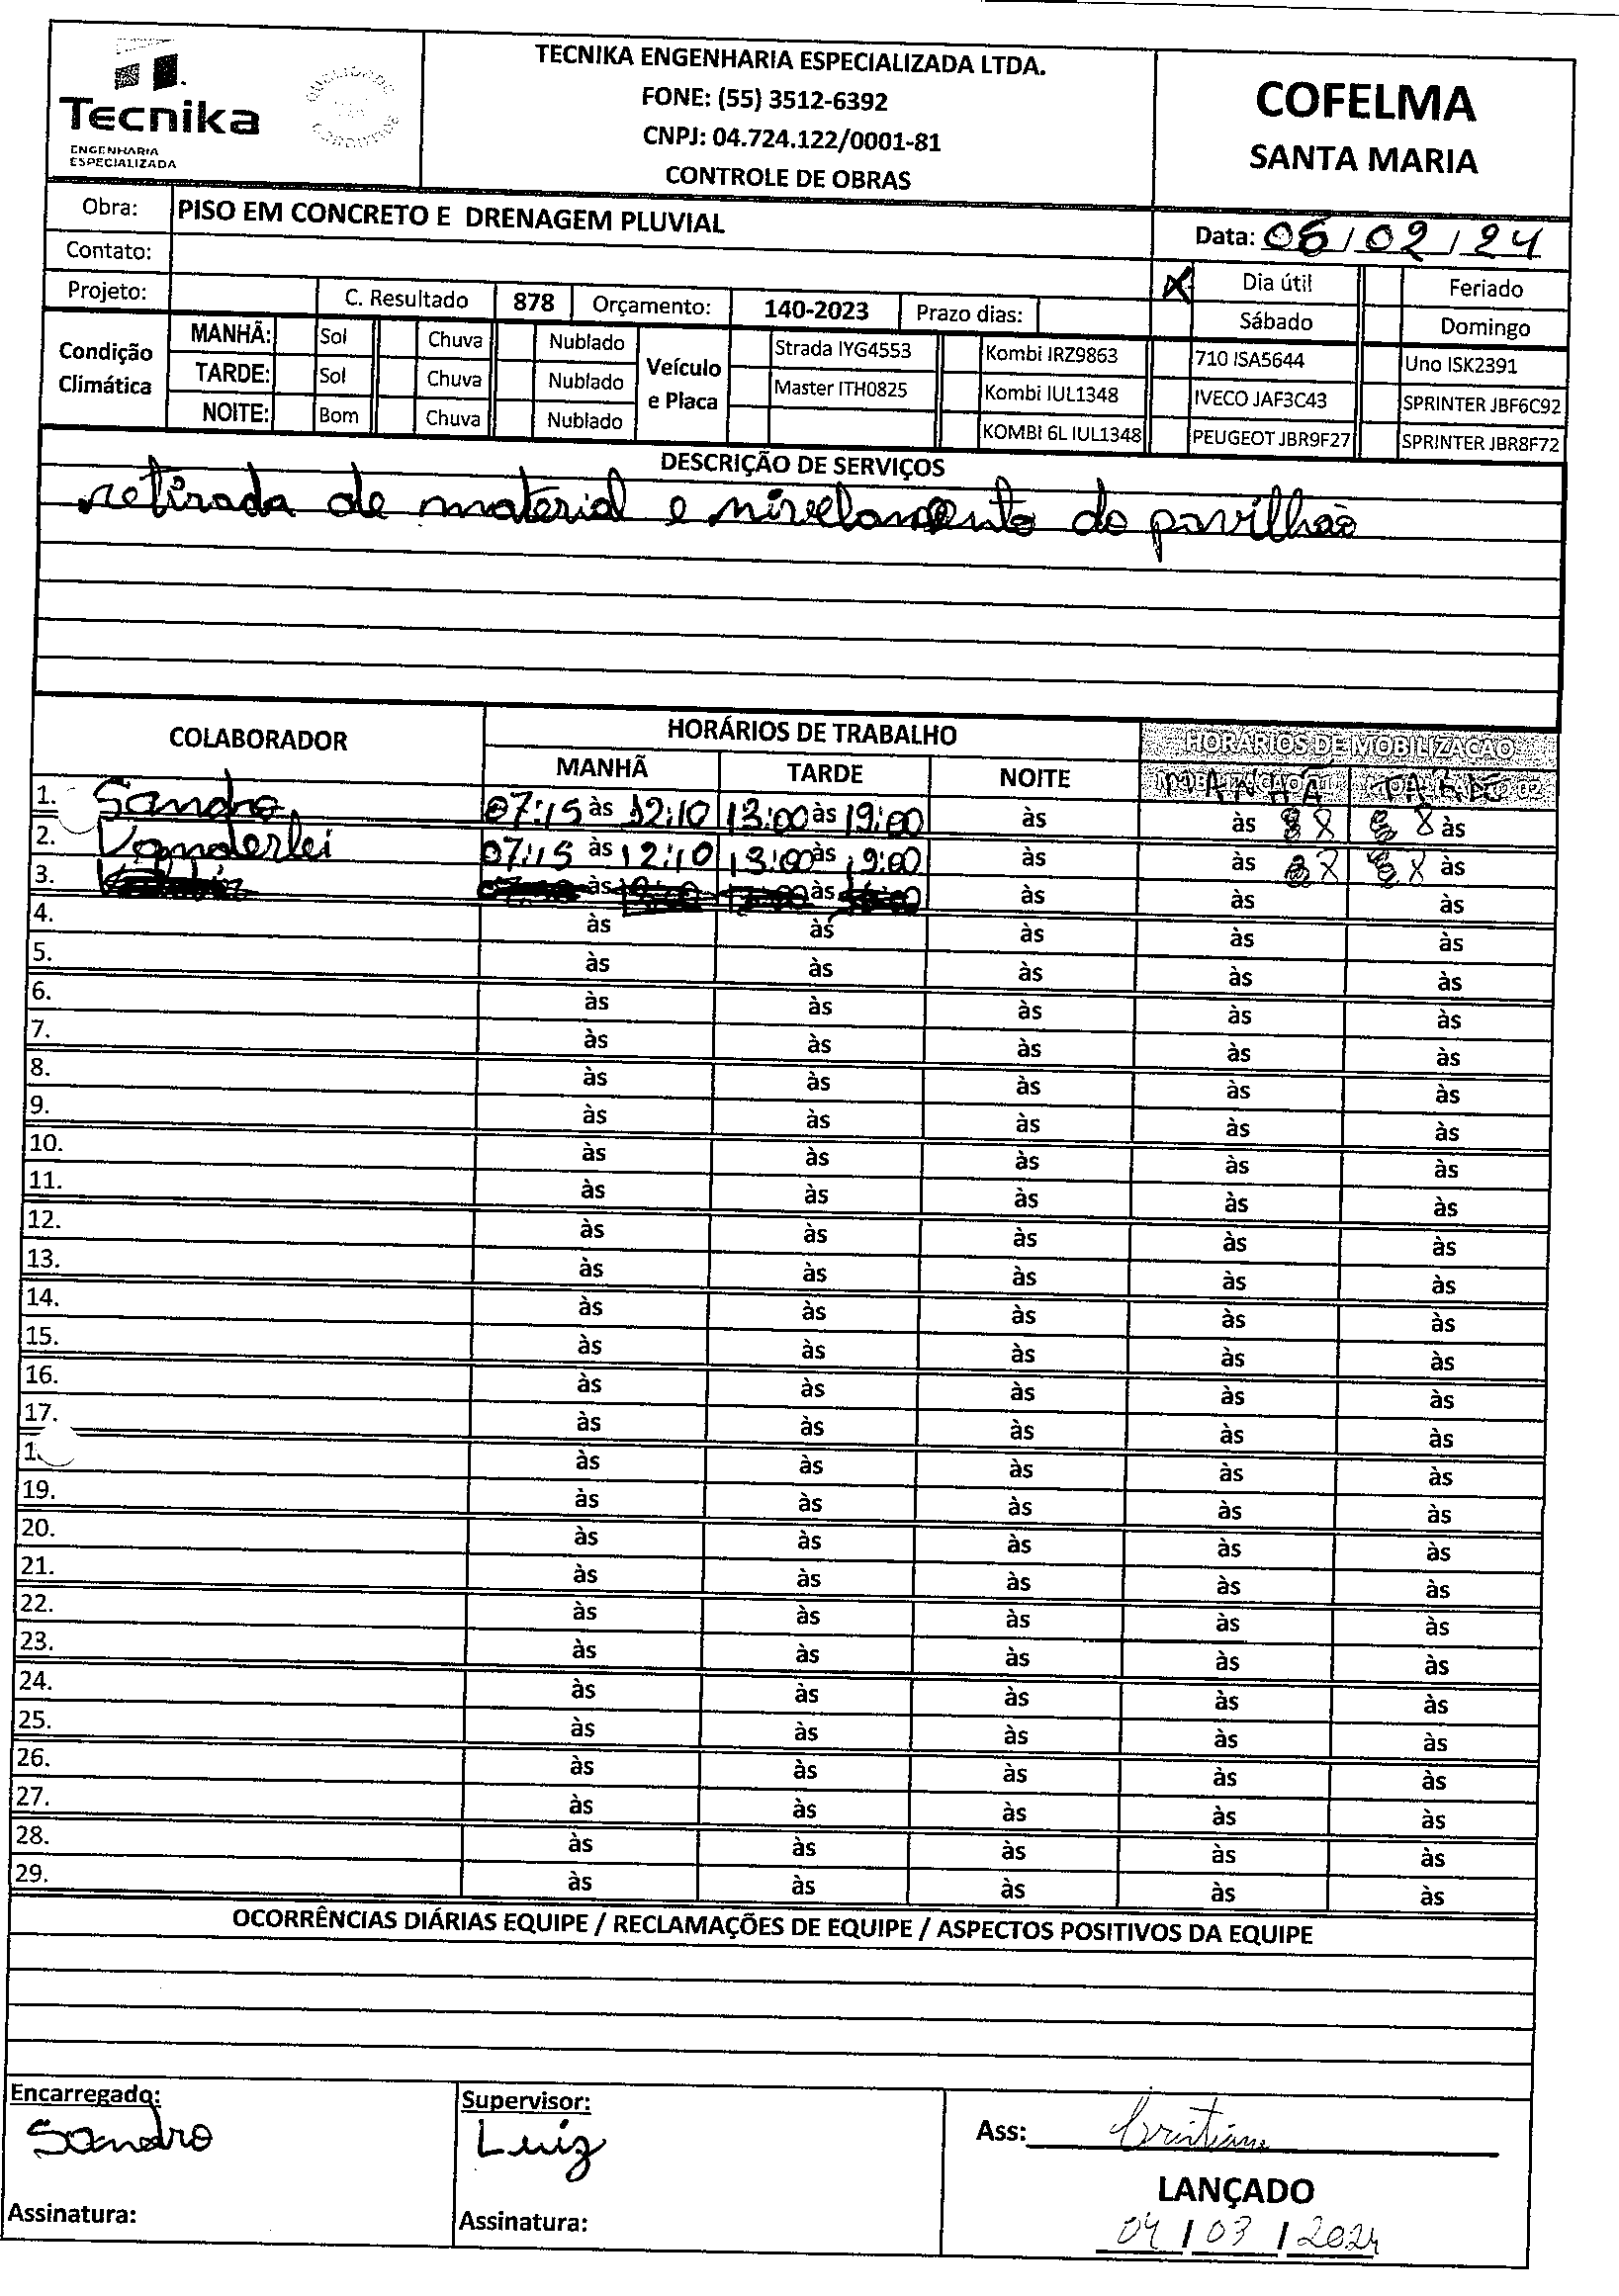 Tecnika
ENGENHARIA
ESPECIALIZADA
QUALIDADE
TECNIKA ENGENHARIA ESPECIALIZADA LTDA.
FONE: (55) 3512-6392
CNPJ: 04.724.122/0001-81
CONTROLE DE OBRAS
COFELMA
SANTA MARIA
Obra: PISO EM CONCRETO E DRENAGEM PLUVIAL
Data: 06/02/24
Contato:
X Dia útil Feriado
Projeto: C. Resultado 878 Orçamento: 140-2023 Prazo dias: Sábado Domingo
Condição Climática
MANHÃ: Sol Chuva Nublado
TARDE: Sol Chuva Nublado
NOITE: Bom Chuva Nublado
Veículo e Placa
Strada IYG4553 Kombi IRZ9863 710 ISA5644 Uno ISK2391
Master ITH0825 Kombi IUL1348 IVECO JAF3C43 SPRINTER JBF6C92
KOMBI 6L IUL1348 PEUGEOT JBR9F27 SPRINTER JBR8F72
DESCRIÇÃO DE SERVIÇOS
retirada de material e nivelamento do pavilhão
COLABORADOR HORÁRIOS DE TRABALHO HORÁRIOS DE MOBILIZAÇÃO
MANHÃ TARDE NOITE MANHÃ TARDE
1. Sandro 07:15 às 12:10 13:00 às 19:00 às às 8 8 às
2. Vanderlei 07:15 às 12:10 13:00 às 19:00 às às 8 8 às
3. às às às às às
4. às às às às às
5. às às às às às
6. às às às às às
7. às às às às às
8. às às às às às
9. às às às às às
10. às às às às às
11. às às às às às
12. às às às às às
13. às às às às às
14. às às às às às
15. às às às às às
16. às às às às às
17. às às às às às
às às às às às
19. às às às às às
20. às às às às às
21. às às às às às
22. às às às às às
23. às às às às às
24. às às às às às
25. às às às às às
26. às às às às às
27. às às às às às
28. às às às às às
29. às às às às às
OCORRÊNCIAS DIÁRIAS EQUIPE / RECLAMAÇÕES DE EQUIPE / ASPECTOS POSITIVOS DA EQUIPE
Encarregado:
Sandro
Assinatura:
Supervisor:
Luiz
Assinatura:
Ass: Cristiane
LANÇADO
04/03/2024